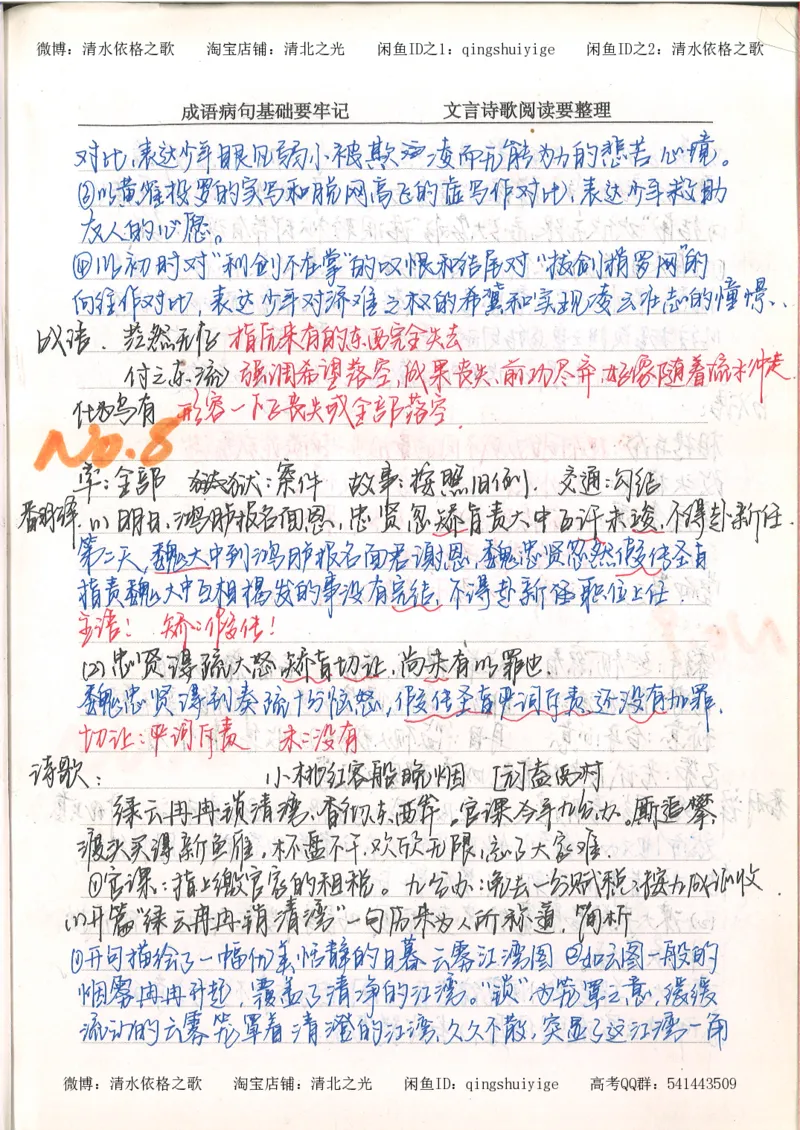 微博：清水依格之歌 淘宝店铺：清北之光 闲鱼ID之1：qingshuiyige 闲鱼ID之2：清水依格之歌
成语病句基础要牢记 文言诗歌阅读要整理
对比，表达少年眼见弱小被欺凌而无能为力的悲苦心境。
③以黄雀投罗的实写和脱网高飞的虚写作对比，表达少年救助
友人的心愿。
④以初时对“利剑不在掌”的叹恨和结尾对“拔剑捎罗网”的
向往作对比，表达少年对济难之权的希冀和实现凌云壮志的憧憬..
成语. 荡然无存 指原来有的东西完全失去
付之东流 强调希望落空，成果丧失，前功尽弃，好像随着流水冲走.
化为乌有 形容一下子丧失或全部落空.
No.8
率：全部 狱：案件 故事：按照旧例. 交通：勾结
翻译. (1) 明日，鸿胪报名面恩，忠贤忽矫旨责大中互讦未竣，不得赴新任.
第二天，魏大中到鸿胪报名面君谢恩，魏忠贤忽然假传圣旨
指责魏大中互相揭发的事没有完结，不得赴新任职位上任.
主语！ 矫：假传！
(2) 忠贤得疏大怒，矫旨切让，尚未有以罪也.
魏忠贤得到奏疏十分恼怒，假传圣旨严词斥责，还没有加罪.
切让：严词斥责 未：没有
诗歌： 小桃红客船晚烟 [元]盍西村
绿云冉冉锁清湾，香彻东西岸。官课今年九分办。厮追攀
渡头买得新鱼雁，杯盘不干，欢欣无限，忘了大家难.
①官课：指上缴官家的租税。 九分办：免去一分赋税，按九成征收.
(1) 开篇“绿云冉冉锁清湾”一句历来为人所称道，简析
①开句描绘了一幅优美恬静的日暮云雾江湾图 ②如云图一般的
烟雾冉冉升起，覆盖了清净的江湾。“锁”为笼罩之意，缓缓
流动的云雾笼罩着清澄的江湾，久久不散，突显了这江湾一角
微博：清水依格之歌 淘宝店铺：清北之光 闲鱼ID：qingshuiyige 高考QQ群：541443509